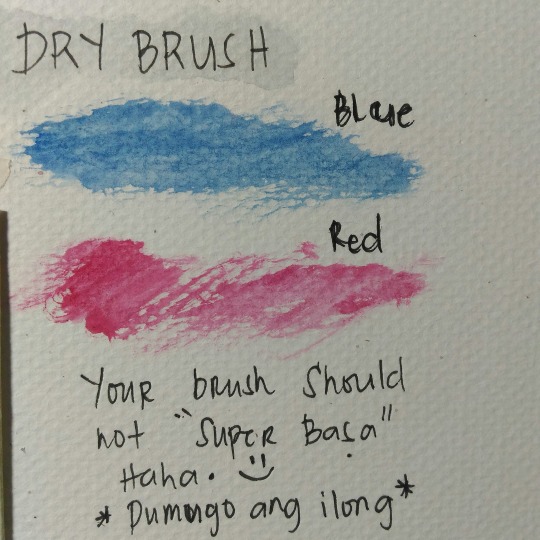 DRY BRUSH
Blue
Red
Your brush should
not "Super Basa"
Haha. :)
* Dumugo ang ilong *